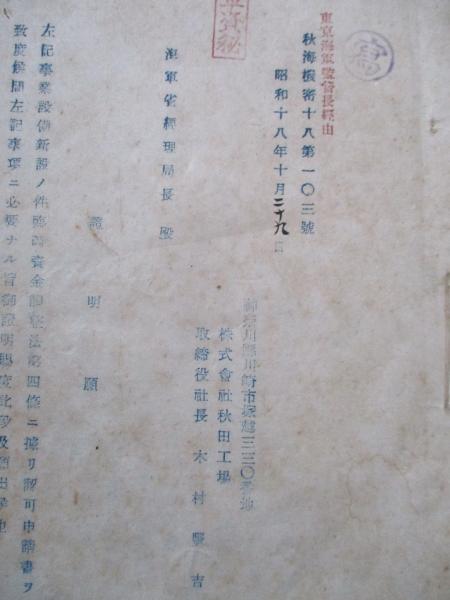 軍資秘
寫
東京海軍監督長經由
秋海機密十八第一〇三號
昭和十八年十月二十九日
海軍省經理局長殿
神奈川縣川崎市堀越一三三〇番地
株式會社秋田工場
取締役社長 木村 吉
證明願
左記事業設備新設ノ件臨時資金調整法第四條ニ據リ認可申請書ヲ
致度候間左記事項ニ必要ナル旨御證明賜度此段及願出候也